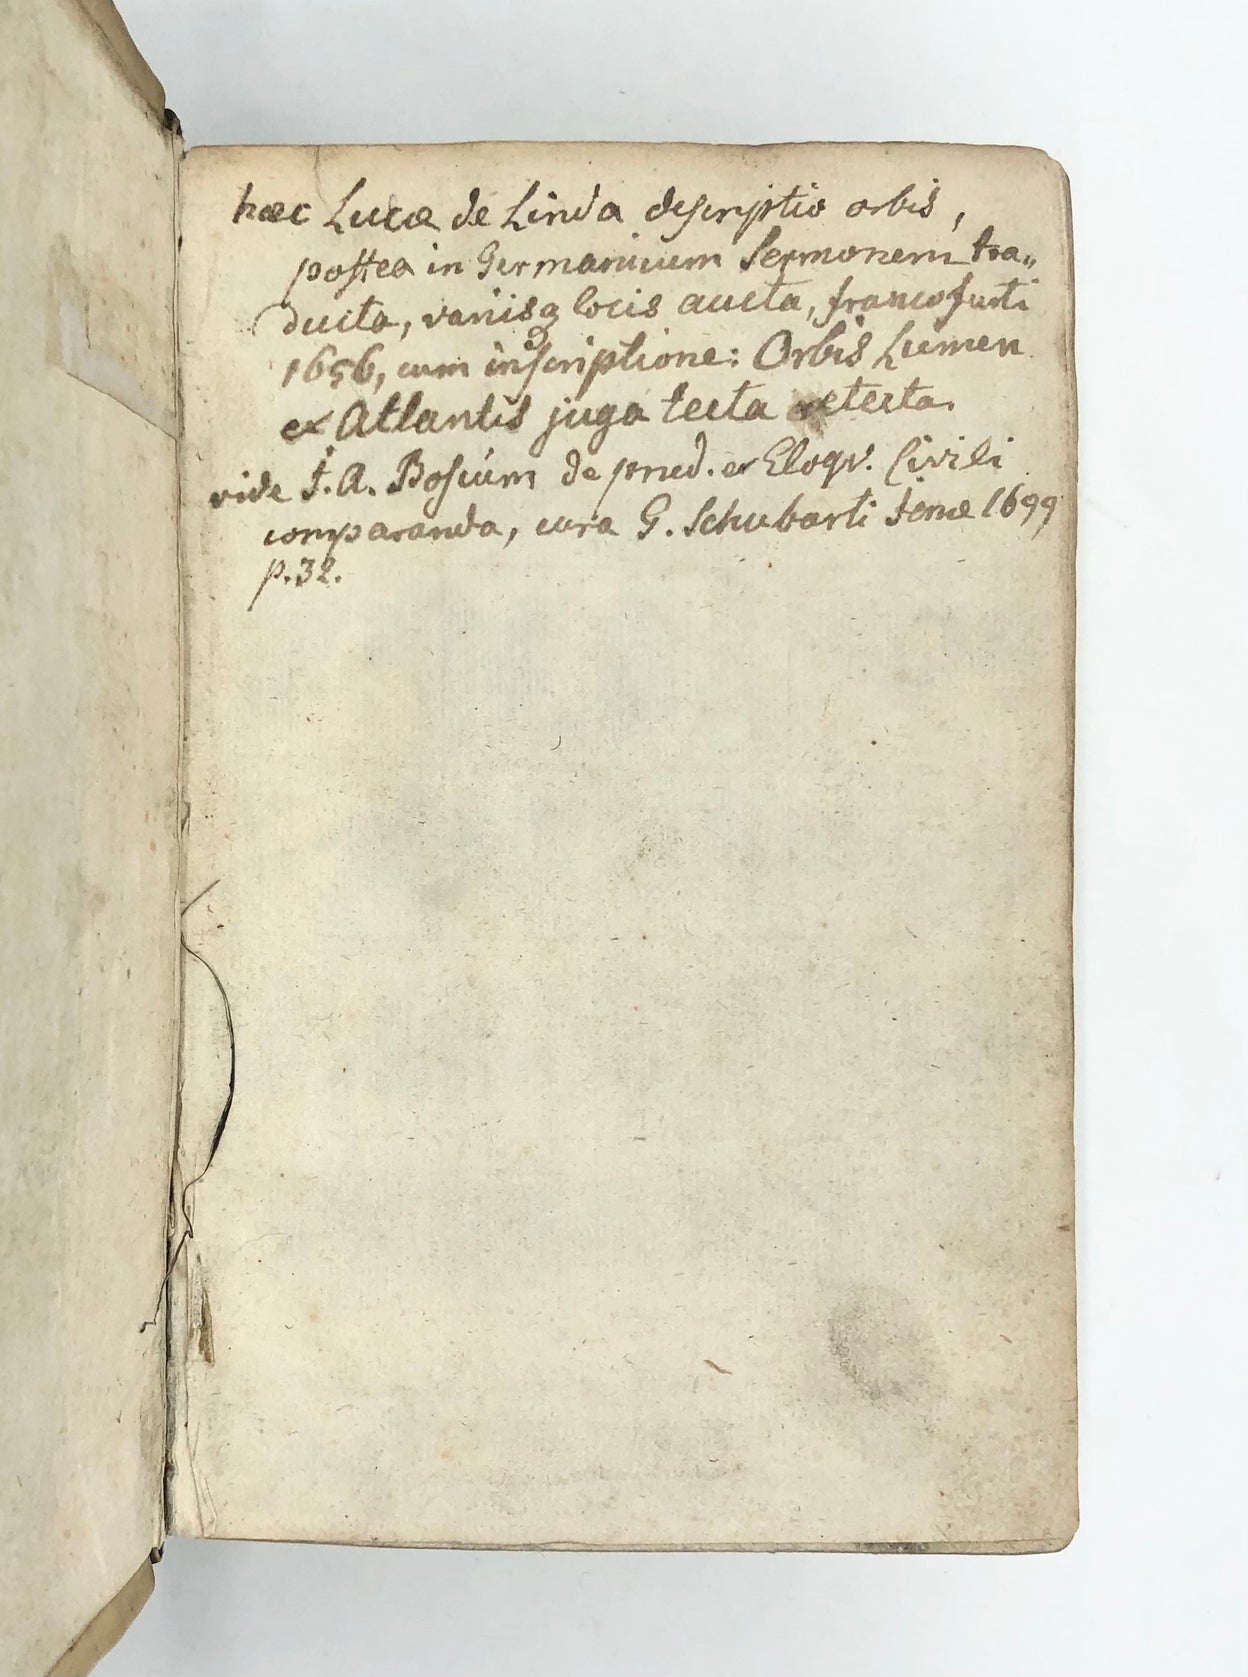 haec Lucae de Linda descriptio orbis,
postea in Germanicum Sermonem tra„
ducta, variisq locis aucta, francofurti
1656, cum inscriptione: Orbis Lumen
ex Atlantis juga tecta retecta.
vide J. A. Bosium de prud. et Eloqv. Civili
comparanda, cura G. Schubarti Jenae 1699
p. 32.